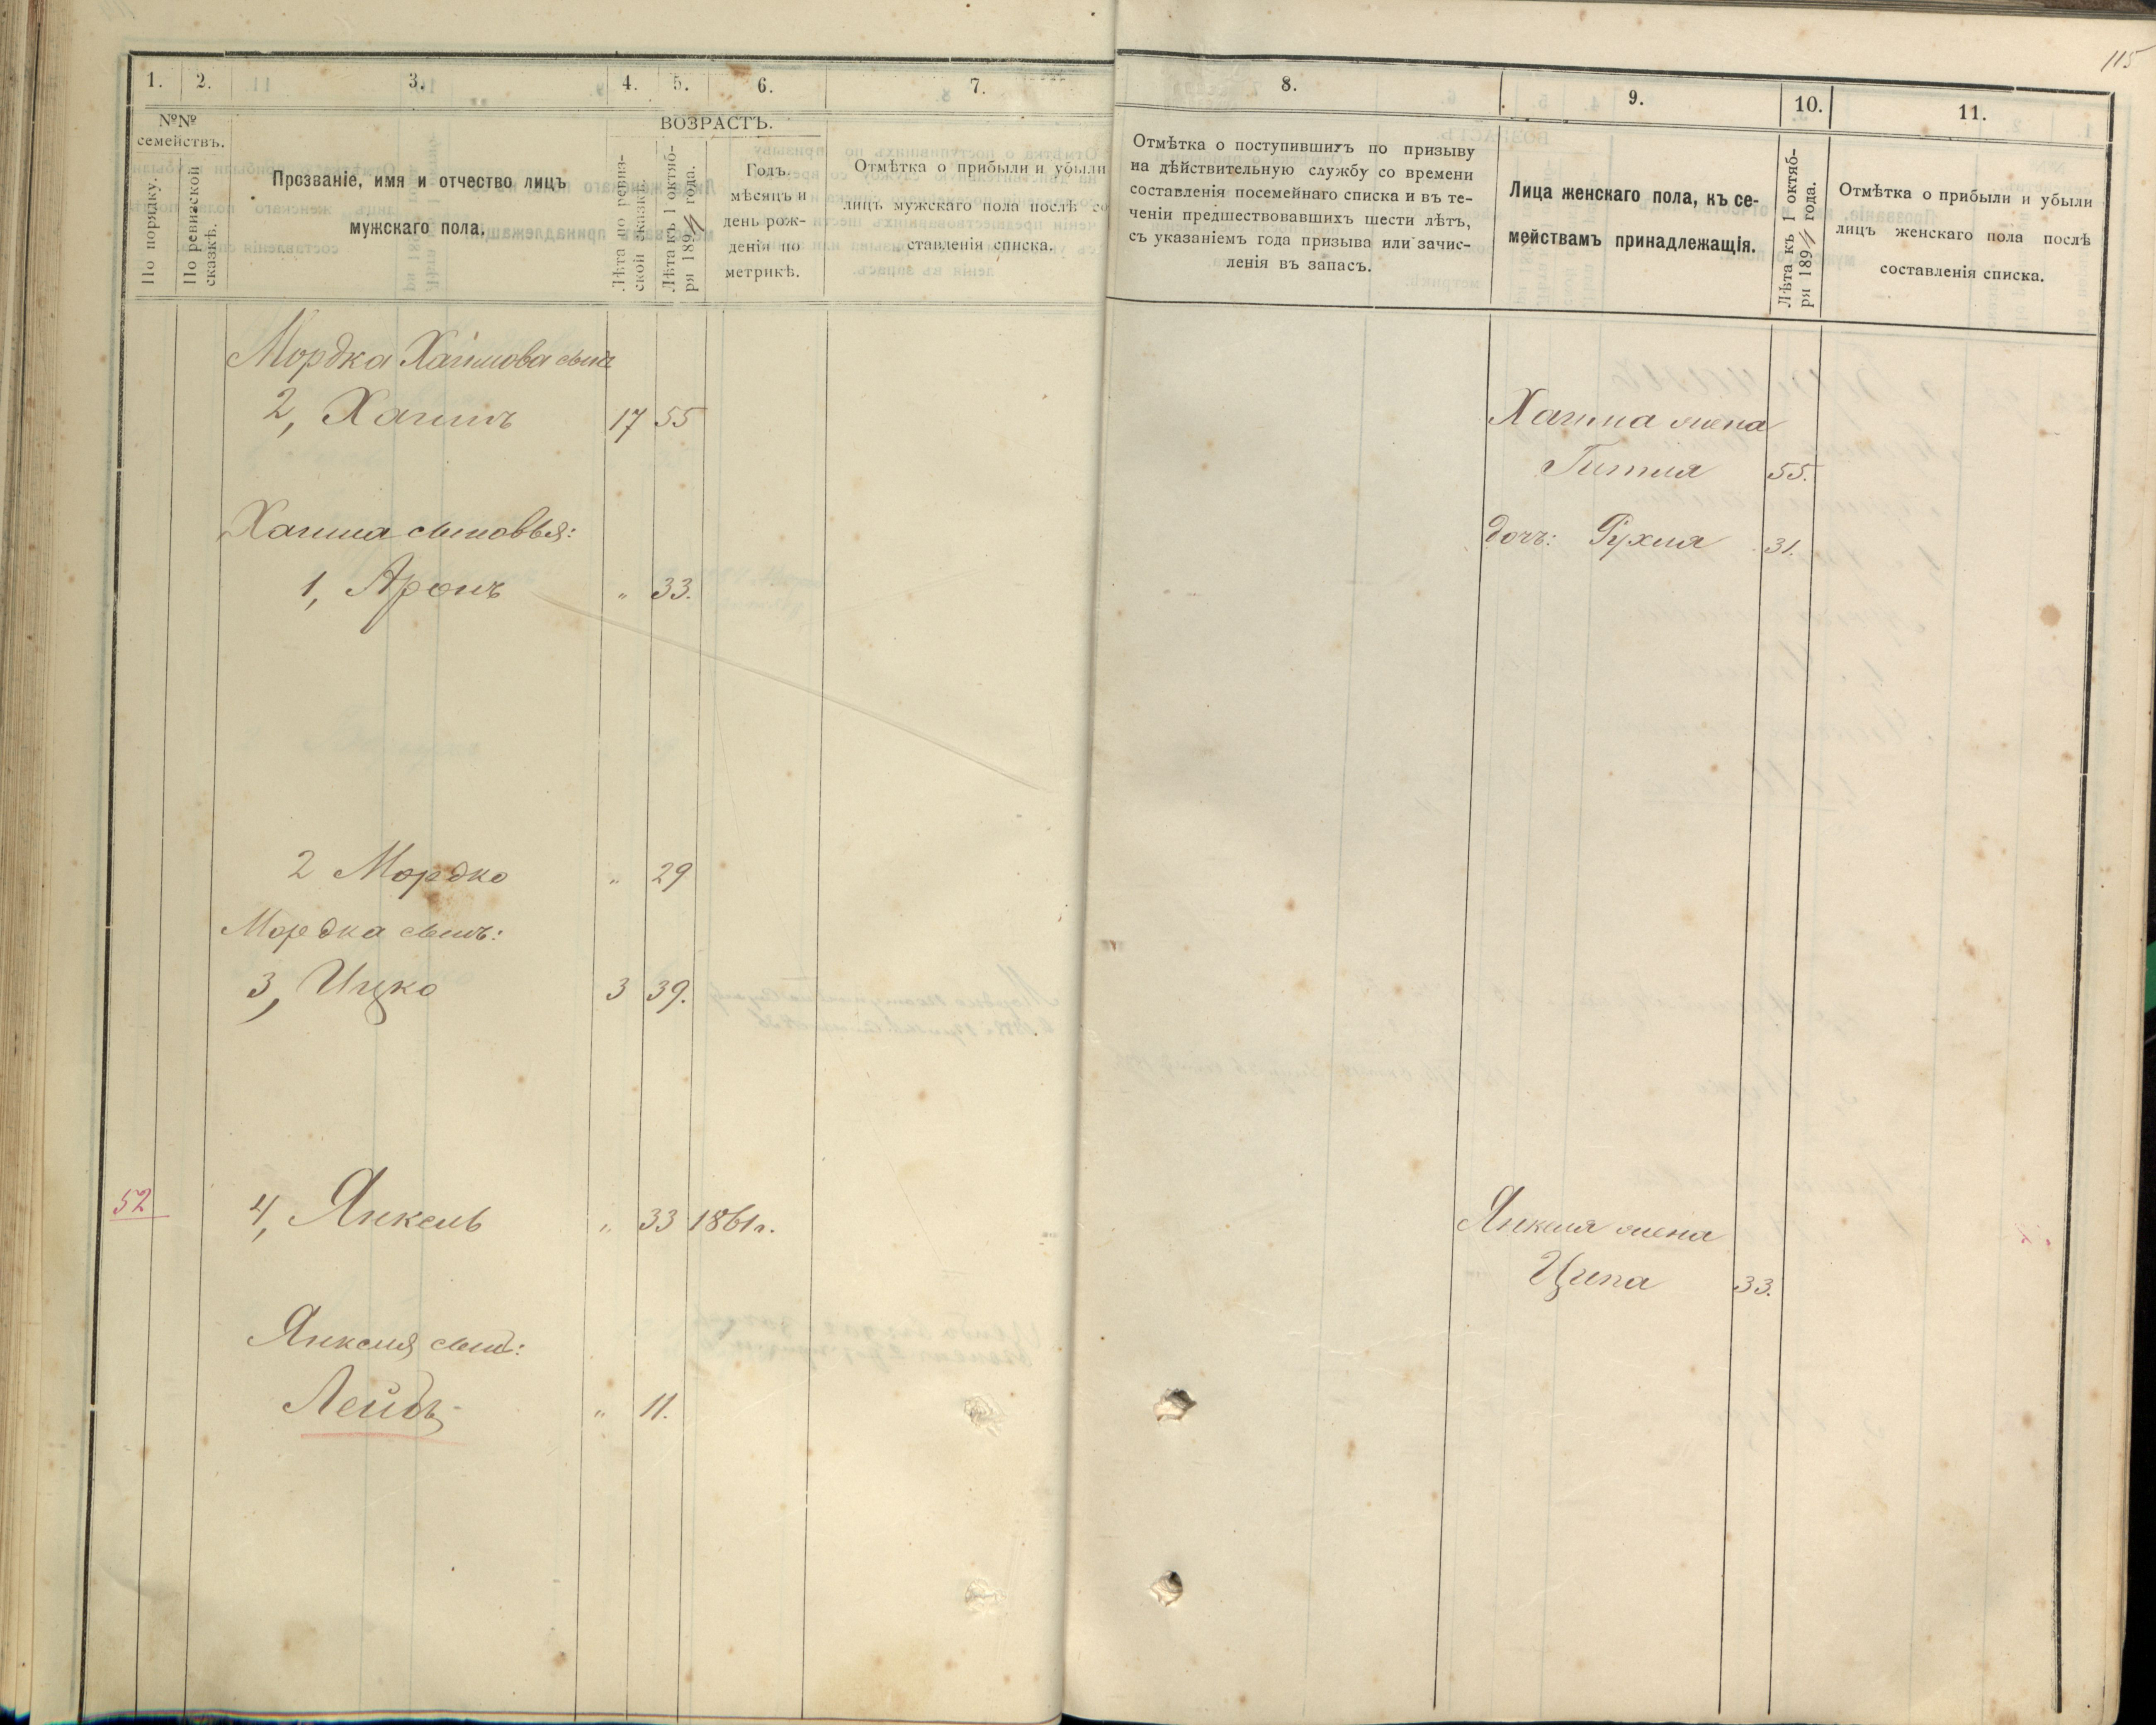 115
1.
2.
3.
4.
5.
6.
7.
№№
семействъ.
По порядку.
По ревизской
сказкѣ.
Прозваніе, имя и отчество лицъ
мужскаго пола.
ВОЗРАСТЪ.
Лѣта по ревиз-
ской сказкѣ.
Лѣта къ 1 октяб-
ря 1894 года.
Годъ,
мѣсяцъ и
день рож-
денія по
метрикѣ.
Отмѣтка о прибыли и убыли
лицъ мужскаго пола послѣ со
ставленія списка.
8.
9.
10.
11.
Отмѣтка о поступившихъ по призыву
на дѣйствительную службу со времени
составленія посемейнаго списка и въ те-
ченіи предшествовавшихъ шести лѣтъ,
съ указаніемъ года призыва или зачис-
ленія въ запасъ.
Лица женскаго пола, къ се-
мействамъ принадлежащія.
Лѣта къ 1 октяб-
ря 1894 года.
Отмѣтка о прибыли и убыли
лицъ женскаго пола послѣ
составленія списка.
Мордка Хаимова сынъ
2, Хаимъ 17 55
Хаима жена
Гитля 55.
Хаима сыновья:
дочь: Рухля 31.
1, Аронъ " 33.
2 Мордко " 29
Мордка сынъ:
3, Ицко 3 39.
52 4, Янкель " 33 1861г.
Янкеля жена
Ципа 33.
Янкеля сынъ:
Лейбъ " 11.